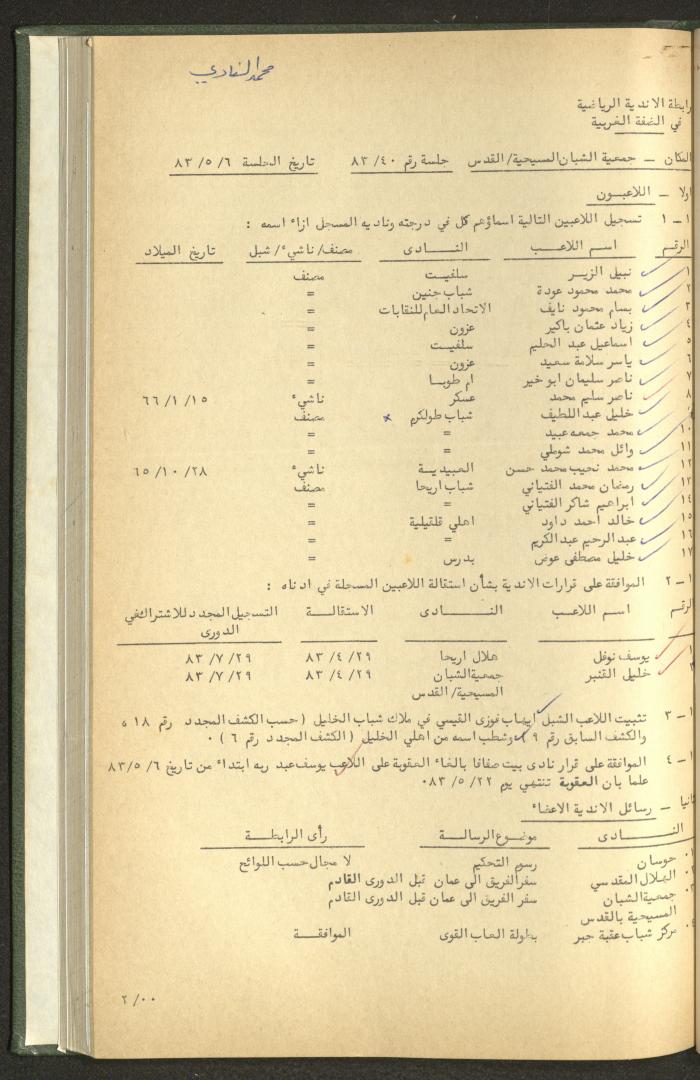 محمد
رابطة الاندية الرياضية
في الضفة الغربية
المكان – جمعية الشبان المسيحية/ القدس جلسة رقم ٤٠/ ٨٣ تاريخ الجلسة ٦/ ٥/ ٨٣
اولا – اللاعبــون
١ – ١ تسجيل اللاعبين التالية اسماؤهم كل في درجته وناديه المسجل ازاء اسمه :
الرقم اسم اللاعب النـــادى مصنف/ ناشيء/ شبل تاريخ الميلاد
١ نبيل الزيـر سلفيـت مصنف
٢ محمد محمود عودة شباب جنين =
٣ بسام محمود نايف الاتحاد العام للنقابات =
٤ زياد عثمان باكير عزون =
٥ اسماعيل عبد الحليم سلفيـت =
٦ ياسر سلامة سعيد عزون =
٧ ناصر سليمان ابو خير ام طوبـا =
٨ ناصر سليم محمد عسكر ناشيء ١٥/ ١/ ٦٦
٩ خليل عبد اللطيف شباب طولكرم × مصنف
١٠ محمد جمعه عبيد = =
١١ وائل محمد شوملي = =
١٢ محمد نجيب محمد حسن العبيديـة ناشيء ٢٨/ ١٠/ ٦٥
١٣ رمضان محمد الفتياني شباب اريحا مصنف
١٤ ابراهيم شاكر الفتياني = =
١٥ خالد احمد داود اهلي قلقيلية =
١٦ عبد الرحيم عبد الكريم = =
١٧ خليل مصطفى عوض بدرس =
١ – ٢ الموافقة على قرارات الاندية بشأن استقالة اللاعبين المسجلة في ادناه :
الرقم اسم اللاعب النـــادى الاستقالـة التسجيل المجدد للاشتراك في
الدورى
١ يوسف نوفل هلال اريحا ٢٩/ ٤/ ٨٣ ٢٩/ ٧/ ٨٣
٢ خليل القنبر جمعية الشبان ٢٩/ ٤/ ٨٣ ٢٩/ ٧/ ٨٣
المسيحية/ القدس
١ – ٣ تثبيت اللاعب الشبل ايهاب فوزى القيسي في ملاك شباب الخليل ( حسب الكشف المجدد رقم ١٨ ،
والكشف السابق رقم ٩ ) وشطب اسمه من اهلي الخليل ( الكشف المجدد رقم ٦ ) .
١ – ٤ الموافقة على قرار نادى بيت صفافا بالغاء العقوبة على اللاعب يوسف عبد ربه ابتداء من تاريخ ٦/ ٨٣/٥
علما بان العقوبة تنتهي يوم ٢٢/ ٥/ ٨٣.
ثانيا – رسائل الاندية الاعضاء
النـــادى موضـوع الرسالـة رأى الرابطـة
١. حوسان رسوم التحكيم لا مجال حسب اللوائح
٢. الهلال المقدسي سفر الفريق الى عمان قبل الدورى القادم
٣. جمعية الشبان سفر الفريق الى عمان قبل الدورى القادم
المسيحية بالقدس
٤. مركز شباب عقبة جبر بطولة العاب القوى الموافقـة
٢/٠٠